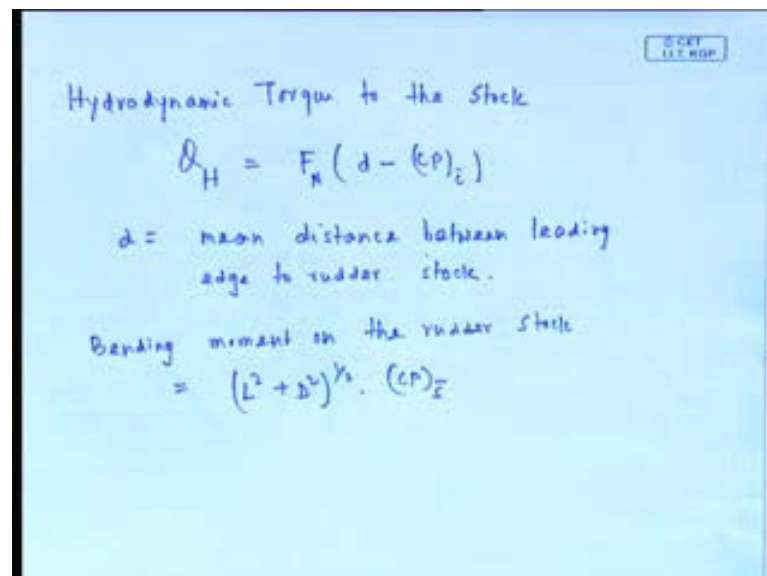 © CET
I.I.T. KGP
Hydrodynamic Torque to the Stock
Q_H = F_N ( d - (CP)_c̄ )
d = mean distance between leading
edge to rudder stock.
Bending moment on the rudder stock
= (L² + D²)^½ . (CP)_s̄